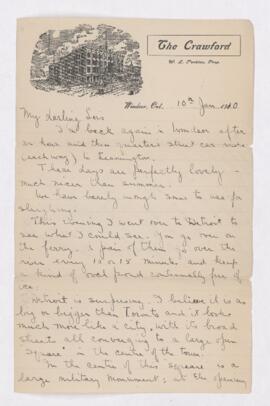 The Crawford
W. L. Perkins, Prop.
Windsor, Ont. 10th Jan. 1910.
My darling Lois
I'm back again in Windsor after
an hour and three quarters street car ride
(each way) to Leamington.
These days are perfectly lovely -
much nicer than summer.
We have barely enough snow to use for
sleighing.
This evening I went over to Detroit to
see what I could see. You go over on
the ferry. A pair of them go over the
river every 10 or 15 minutes and keep
a kind of road proud continually free of
ice.
Detroit is surprising. I believe it is as
big or bigger than Toronto and it looks
much more like a city, with its broad
streets all converging to a large open
"square" in the centre of the town.
In the centre of this square is a
large military monument; at the opening